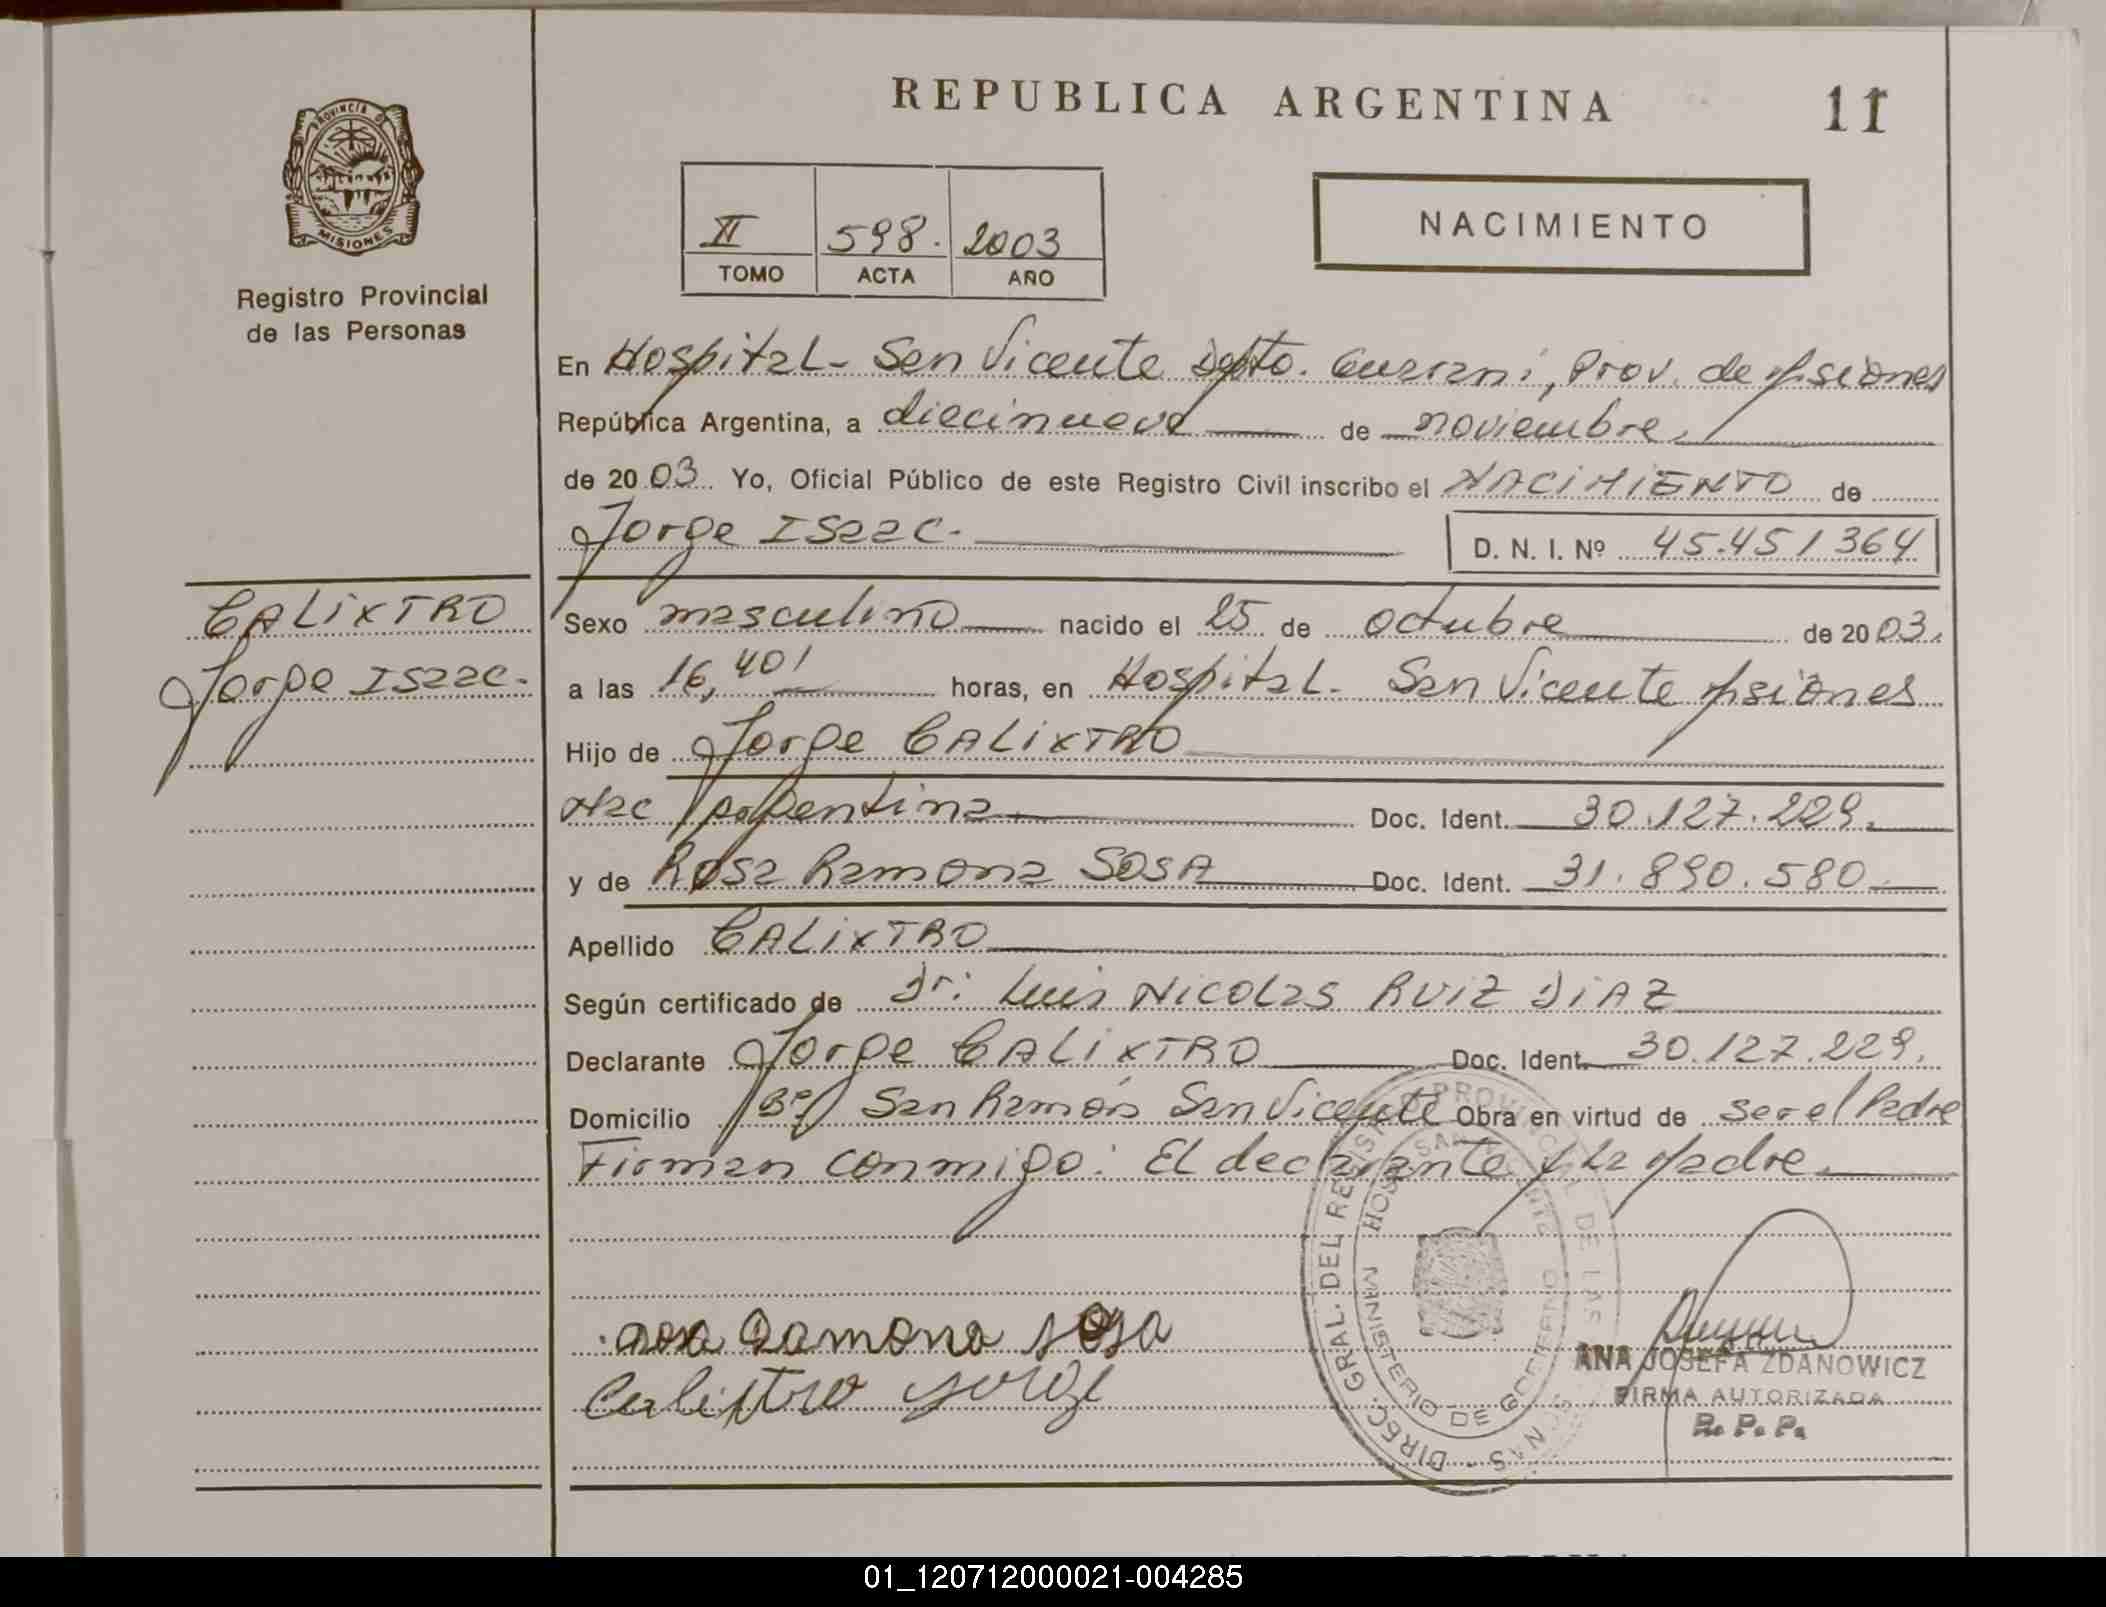 REPUBLICA ARGENTINA
11
PROVINCIA DE
MISIONES
Registro Provincial
de las Personas
NACIMIENTO
XI 598. 2003
TOMO ACTA AÑO
En Hospital - San Vicente Dpto. Guaraní, Prov. de Misiones
República Argentina, a diecinueve de noviembre,
de 2003 Yo, Oficial Público de este Registro Civil inscribo el NACIMIENTO de
Jorge Isaac. D. N. I. Nº 45.451364
CALIXTRO
Jorge Isaac.
Sexo masculino nacido el 25 de octubre de 2003.
a las 16,40' horas, en Hospital - San Vicente Misiones
Hijo de Jorge CALIXTRO
Nac Argentina Doc. Ident. 30.127.229.
y de Rosa Ramona SOSA Doc. Ident. 31.890.580
Apellido CALIXTRO
Según certificado de Dr. Luis Nicolas RUIZ DIAZ
Declarante Jorge CALIXTRO Doc. Ident. 30.127.229.
Domicilio Bº San Ramón San Vicente Obra en virtud de ser el Padre
Firman conmigo: El declarante y la Madre.
Ramona sosa
Calistro Jorge
DIREC. GRAL. DEL REGIST. PROVINCIAL DE LAS PERSONAS
HOSP. SAN VICENTE
MINISTERIO DE GOBIERNO
ANA JOSEFA ZDANOWICZ
FIRMA AUTORIZADA
R. P. P.
01_120712000021-004285